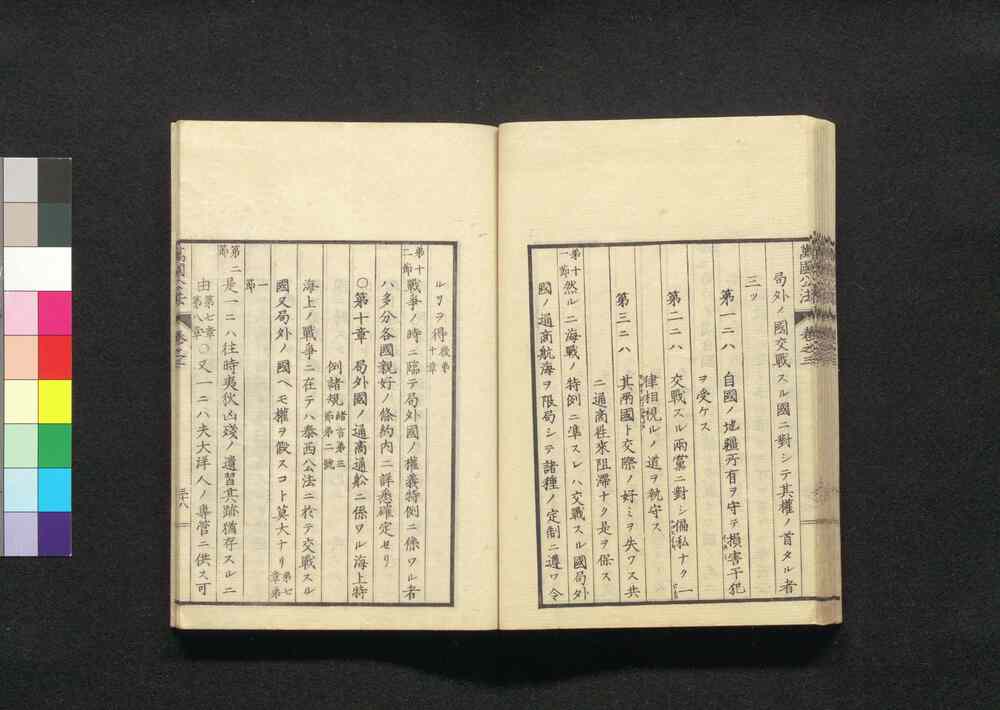 萬國公法　卷之三
局外ノ國交戰スル國ニ對シテ其權ノ首タル者
三ッ
第一ニハ　自國ノ地疆所有ヲ守テ損害干犯
ヲ受ケス
第二ニハ　交戰スル兩黨ニ對シ偏私ナク一
律相視ルノ道ヲ執守ス
第三ニハ　其兩國ト交際ノ好ミヲ失ワス共
ニ通商往來阻滯ナク是ヲ保ス
第十一節
然ルニ海戰ノ特例ニ準スレハ交戰スル國局外
國ノ通商航海ヲ限局シテ諸種ノ定制ニ遵ワ令
ルヿヲ得
第十二節
戰爭ノ時ニ臨テ局外國ノ權義特例ニ係ワル者
ハ多分各國親好ノ條約内ニ詳悉確定セリ
○第十章　局外國ノ通商通舩ニ係ワル海上特
例諸規　緒言第三節第二號
海上ノ戰爭ニ在テハ泰西公法ニ於テ交戰スル
國又局外ノ國ヘモ權ヲ假スコト莫大ナリ　第七章第
一節
第二節
是一ニハ往時夷伙凶殘ノ遺習其跡猶存スルニ
由　第七章第八章　○又一ニハ夫大洋人ノ專管ニ供ス可
萬國公法　卷之三　三十八